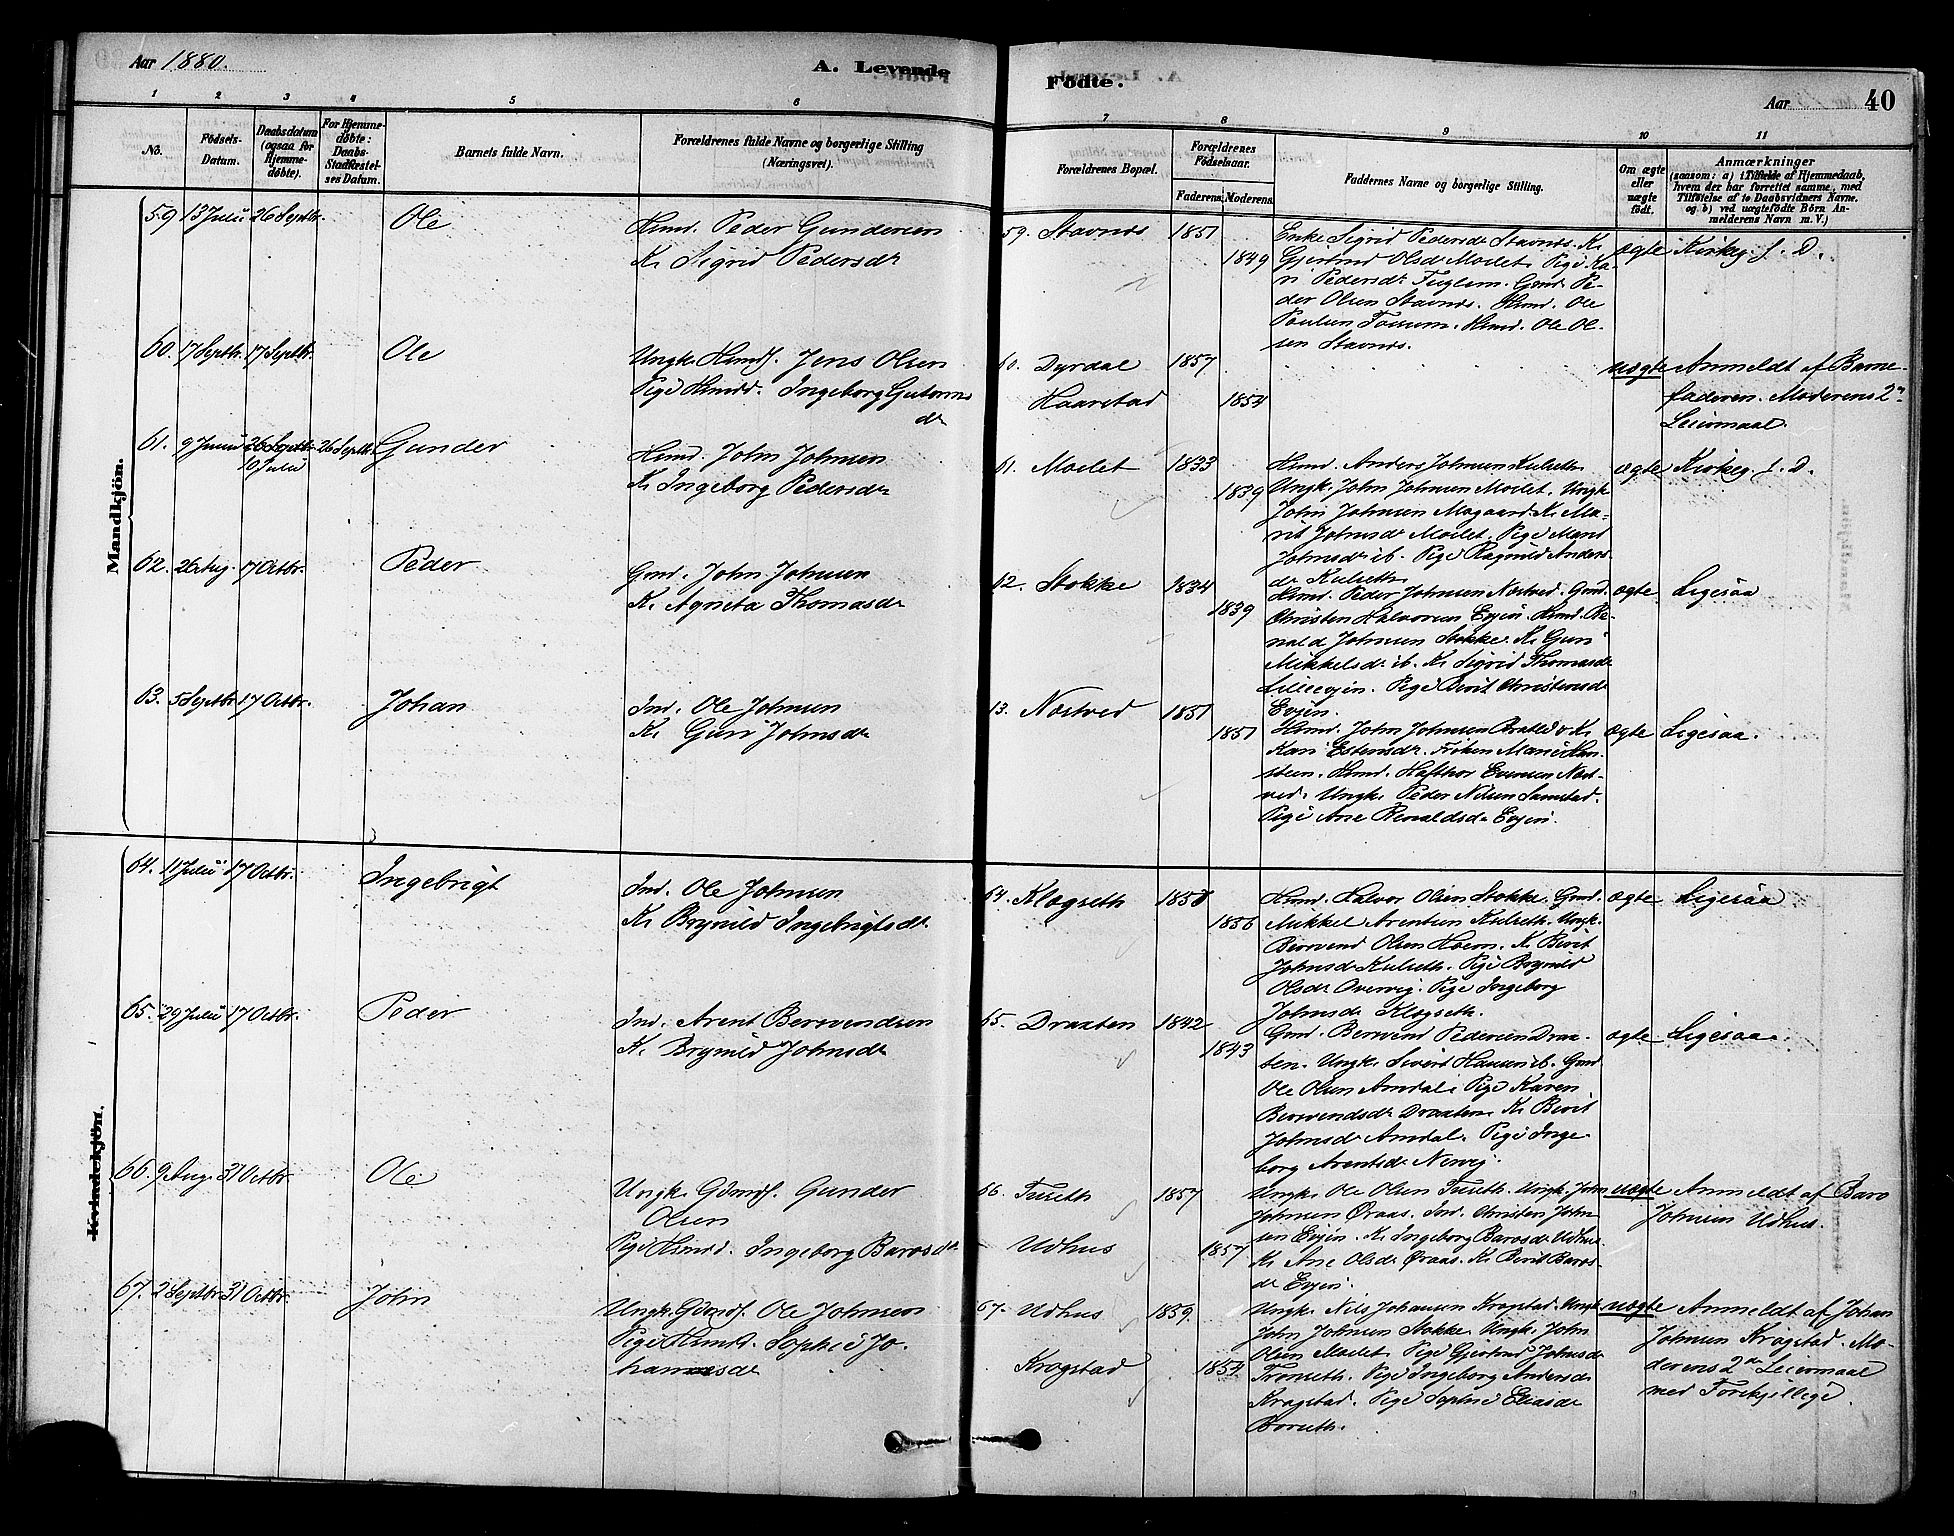 Aar 1880.
A. Levende
Födte.
Aar
40
1
2
3
4
5
6
7
8
9
10
11
No.
Födsels-
Datum.
Daabsdatum
(ogsaa for
Hjemme-
døbte).
For Hjemme-
døbte:
Daabs-
Stadfæstel-
ses Datum.
Barnets fulde Navn.
Forældrenes fulde Navne og borgerlige Stilling
(Næringsvei).
Forældrenes Bopæl.
Forældrenes
Födselsaar.
Faderens.
Moderens.
Faddernes Navne og borgerlige Stilling.
Om ægte
eller
uægte
født.
Anmærkninger
(saasom: a) i Tilfælde af Hjemmedaab,
hvem der har forrettet samme, med
Tilføielse af to Daabsvidners Navne.
og b) ved uægtefødte Börn An-
melderens Navn m. V.)
Mandkjön.
59. 13 Juli 26 Septbr.
Ole
Hmd. Peder Gundersen
K. Sigrid Pedersdr
59. Stavnes 1851
1849
Enke Sigrid Pedersdr Stavnes. K.
Gjertrud Olsdr Moslet. Pige Ka-
ri Pedersdr Fuglem. Gmd. Pe-
der Olsen Stavnes. Hmd. Ole
Paulsen Fossum. Hmd. Ole Ol-
sen Stavnes.
ægte
Kirkeg. f. D.
60. 17 Septbr. 17 Septbr.
Ole
Ungk. Hmdf. Jens Olsen
Pige Hmdd. Ingeborg Gutorms
dr
60. Dyrdal 1857
Haarstad 1854
uægte
Anmeldt af Barne-
faderen. Moderens 2n
Leiermaal.
61. 9 Juni 26 Septbr. 26 Septbr.
10 Juli
Gunder
Hmd. John Johnsen
K. Ingeborg Pedersdr
61. Moslet 1833
1839
Hmd. Anders Johnsen Kulseth
Ungk. John Johnsen Moslet. Ungk
John Johnsen Mogaard. K. Ma-
rit Johnsdr Moslet. Pige Marit
Johnsdr ib. Pige Ragnild Anders
dr Kulseth
ægte
Kirkeg. f. D.
62. 26 Aug. 17 Octbr.
Peder
Gmd. John Johnsen
K. Agneta Thomasdr
62. Stokke 1834
1839
Hmd. Peder Johnsen Nostved. Gmd.
Christen Halvorsen Evjen. Hmd. Re-
nald Johnsen Stokke. K. Guri
Mikkelsdr ib. K. Sigrid Thomasdr
Lilleevjen. Pige Berit Christensdr
Evjen.
ægte
Ligesaa
63. 5 Septbr. 17 Octbr.
Johan
Ind. Ole Johnsen
K. Guri Johnsdr
63. Nostved 1851
1851
Hmd. John Johnsen Bratli & K.
Kari Estensdr. Frøken Marie Han-
steen. Hmd. Hafthor Evensen Nost-
ved. Ungk. Peder Nilsen Samstad.
Pige Ane Renaldsdr Evjen.
ægte
Ligesaa.
Kvindekjön.
64. 11 Juli 17 Octbr.
Ingebrigt
Ind. Ole Johnsen
K. Brynild Ingebrigtsdr.
64. Klogseth 1850
1856
Hmd. Halvor Olsen Stokke. Gmd.
Mikkel Arentsen Kulseth. Ungk.
Berevend Olsen Hoem. K. Berit
Johnsdr Kulseth. Pige Brynild
Olsdr Overvig. Pige Ingeborg
Johnsdr Klogseth.
ægte
Ligesaa
65. 29 Juli 17 Octbr.
Peder
Ind. Arent Berevendsen
K. Brynild Johnsdr
65. Draxten 1842
1843
Gmd. Berevend Pedersen Drax-
ten. Ungk. Sivert Hansen ib. Gmd
Ole Olsen Amdal. Pige Karen
Berevendsdr Draxten. K. Berit
Johnsdr Amdal. Pige Inge
borg Arentsdr Nervig.
ægte
Ligesaa.
66. 9 Aug. 31 Octbr.
Ole
Ungk. Gdmdf. Gunder
Olsen
Pige Hsmdd. Ingeborg Barosdr.
66. Tuseth 1857
Udhus 1857
Ungk. Ole Olsen Tuseth. Ungk. John
Johnsen Øraas. Ind. Christen John
sen Evjen. K. Ingeborg Barosdr Udhus
K. Ane Olsdr Øraas. K. Berit Baros-
dr Evjen.
uægte
Anmeldt af Baro
Johnsen Udhus.
67. 2 Septbr. 31 Octbr.
John
Ungk. Gdmdf. Ole Johnsen
Pige Hsmdd. Sophie Jo-
hannesdr
67. Udhus 1859.
Kragstad 1854
Ungk. Nils Johansen Kragstad. Ungk
John Johnsen Stokke. Ungk. John
Olsen Moslet. Pige Gjertrud Johnsdr
Tronseth. Pige Ingeborg Andersdr
Kragstad. Pige Sophie Eliasdr
Borseth.
uægte
Anmeldt af Johan
Johnsen Kragstad. Mo-
derens 2det Leiermaal
med Forskjellige.